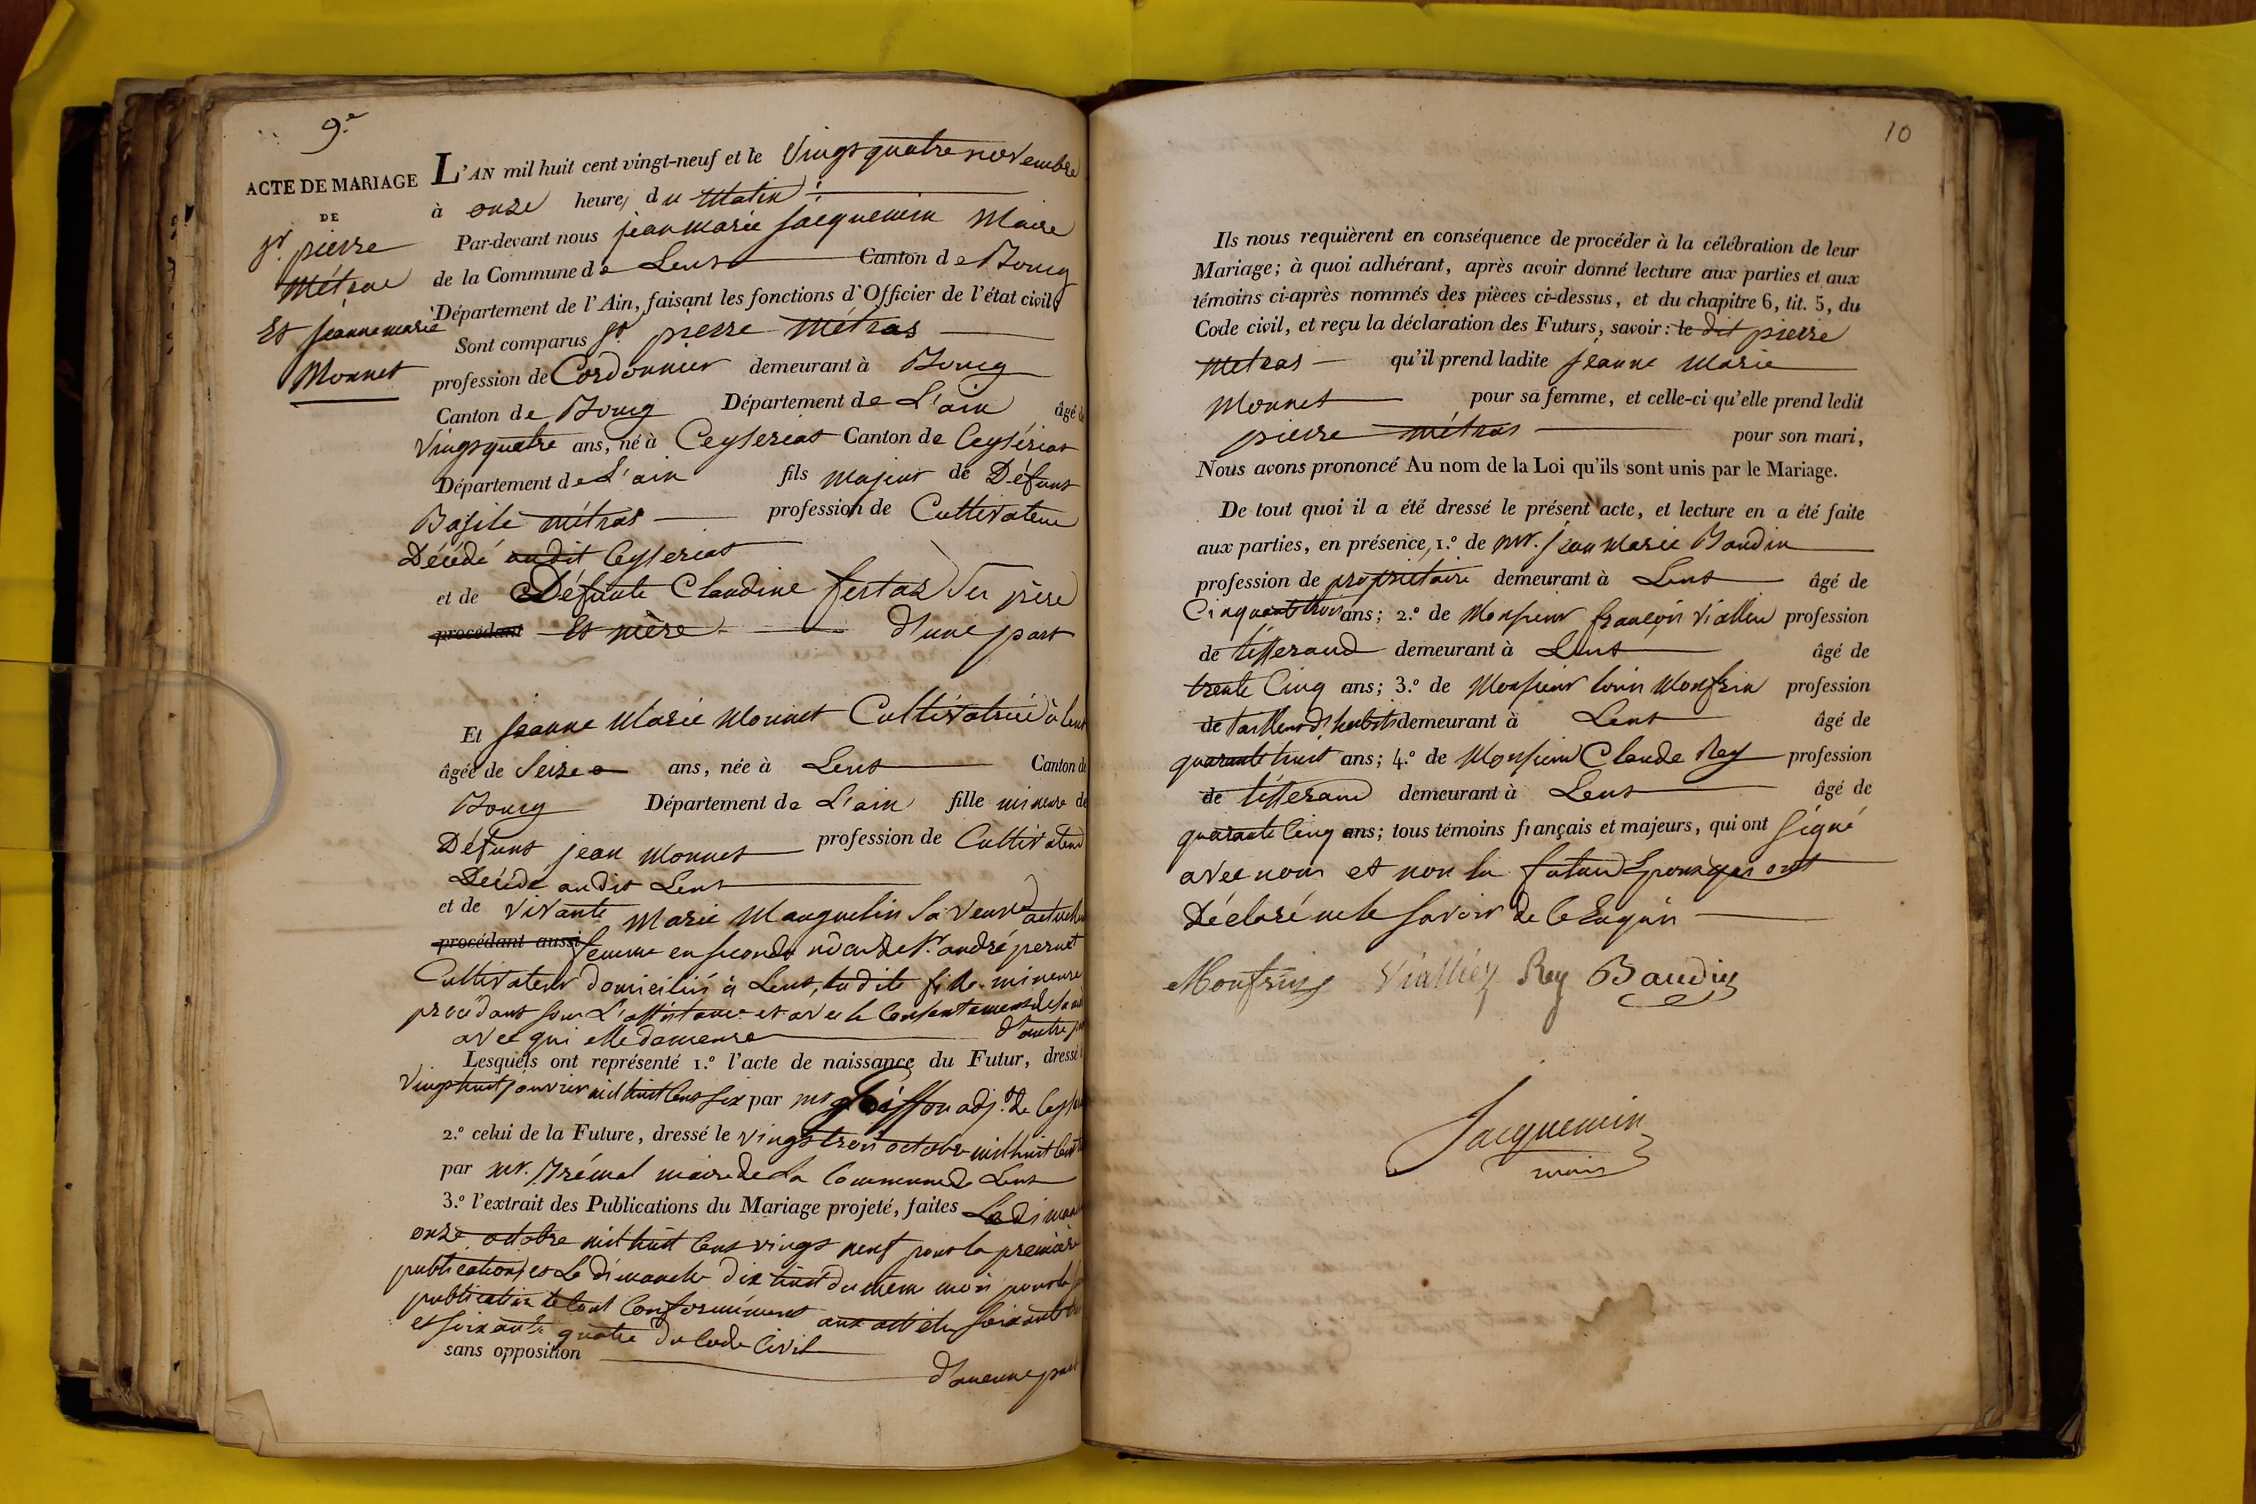 9.e
ACTE DE MARIAGE
DE
Sr. pierre
Métras
Et jeanne marie
Monnet
L'AN mil huit cent vingt-neuf et le Vingt quatre novembre
à onze heures du Matin
Par-devant nous jean marie Jacquemin Maire
de la Commune de Lent Canton de Bourg
Département de l'Ain, faisant les fonctions d'Officier de l'état civil
Sont comparus Sr. pierre Métras
profession de Cordonnier demeurant à Bourg
Canton de Bourg Département de L'ain âgé de
Vingt quatre ans, né à Ceyseriat Canton de Ceysériat
Département de L'ain fils majeur de Défunt
Basile métras profession de Cultivateur
Décédé audit Ceyseriat
et de Défunte Claudine festaz Ses père
procédant Et mère d'une part
Et jeanne Marie Monnet Cultivatrice à Lent
âgée de Seize ans, née à Lent Canton de
Bourg Département de L'ain fille mineure de
Défunt jean Monnet profession de Cultivateur
Décédé audit Lent
et de vivante Marie Manguelin Sa veuve actuellem
procédant aussi femme en secondes nôces de Sr. andré pernet
Cultivateur domicilié à Lent, ladite fille mineure
procédant sous L'assistance et avec le Consentement de sa
avec qui elle demeure d'autre
Lesquels ont représenté 1.o l'acte de naissance du Futur, dressé
Vingt huit janvier mil huit Cent six par mr adj.t de
2.o celui de la Future, dressé le vingt trois octobre mil huit Cent
par mr. Brémal maire de La Commune de Lent
3.o l'extrait des Publications du Mariage projeté, faites Le dimanche
onze octobre mil huit Cent vingt neuf pour la première
publication, et Le dimanche dix huit du même mois pour la
publication le tout Conformément aux articles soixante
et soixante quatre du Code Civil
sans opposition d'aucune part
10
Ils nous requièrent en conséquence de procéder à la célébration de leur
Mariage; à quoi adhérant, après avoir donné lecture aux parties et aux
témoins ci-après nommés des pièces ci-dessus, et du chapitre 6, tit. 5, du
Code civil, et reçu la déclaration des Futurs, savoir: le dit pierre
Métras qu'il prend ladite jeanne Marie
Monnet pour sa femme, et celle-ci qu'elle prend ledit
pierre métras pour son mari,
Nous avons prononcé Au nom de la Loi qu'ils sont unis par le Mariage.
De tout quoi il a été dressé le présent acte, et lecture en a été faite
aux parties, en présence, 1.o de mr. jean Marie Baudin
profession de propriétaire demeurant à Lent âgé de
Cinquante trois ans; 2.o de Monsieur françois Viallier profession
de tisserand demeurant à Lent âgé de
trente Cinq ans; 3.o de Monsieur Louis Monfrin profession
de tailleur d'habits demeurant à Lent âgé de
quarante huit ans; 4.o de Monsieur Claude Rey profession
de tisserand demeurant à Lent âgé de
quarante Cinq ans; tous témoins français et majeurs, qui ont Signé
avec nous et non les futurs Epoux qui ont
Déclaré ne le savoir de Ce Enquis
Monfrin Viallier Rey Baudin
Jacquemin
maire